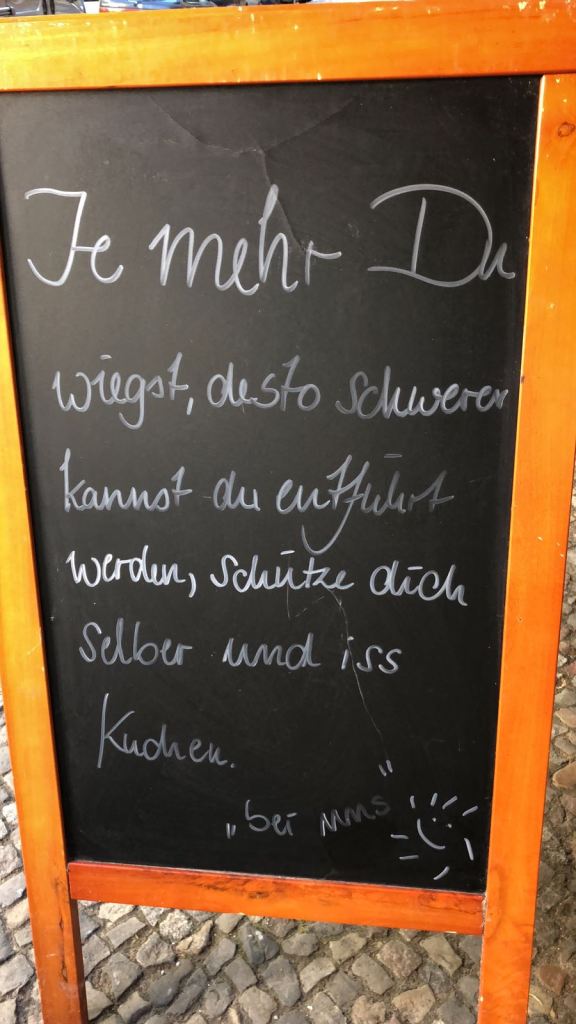 Je mehr Du
wiegst, desto schwerer
kannst du entführt
werden, schütze dich
selber und iss
Kuchen.
„bei uns"